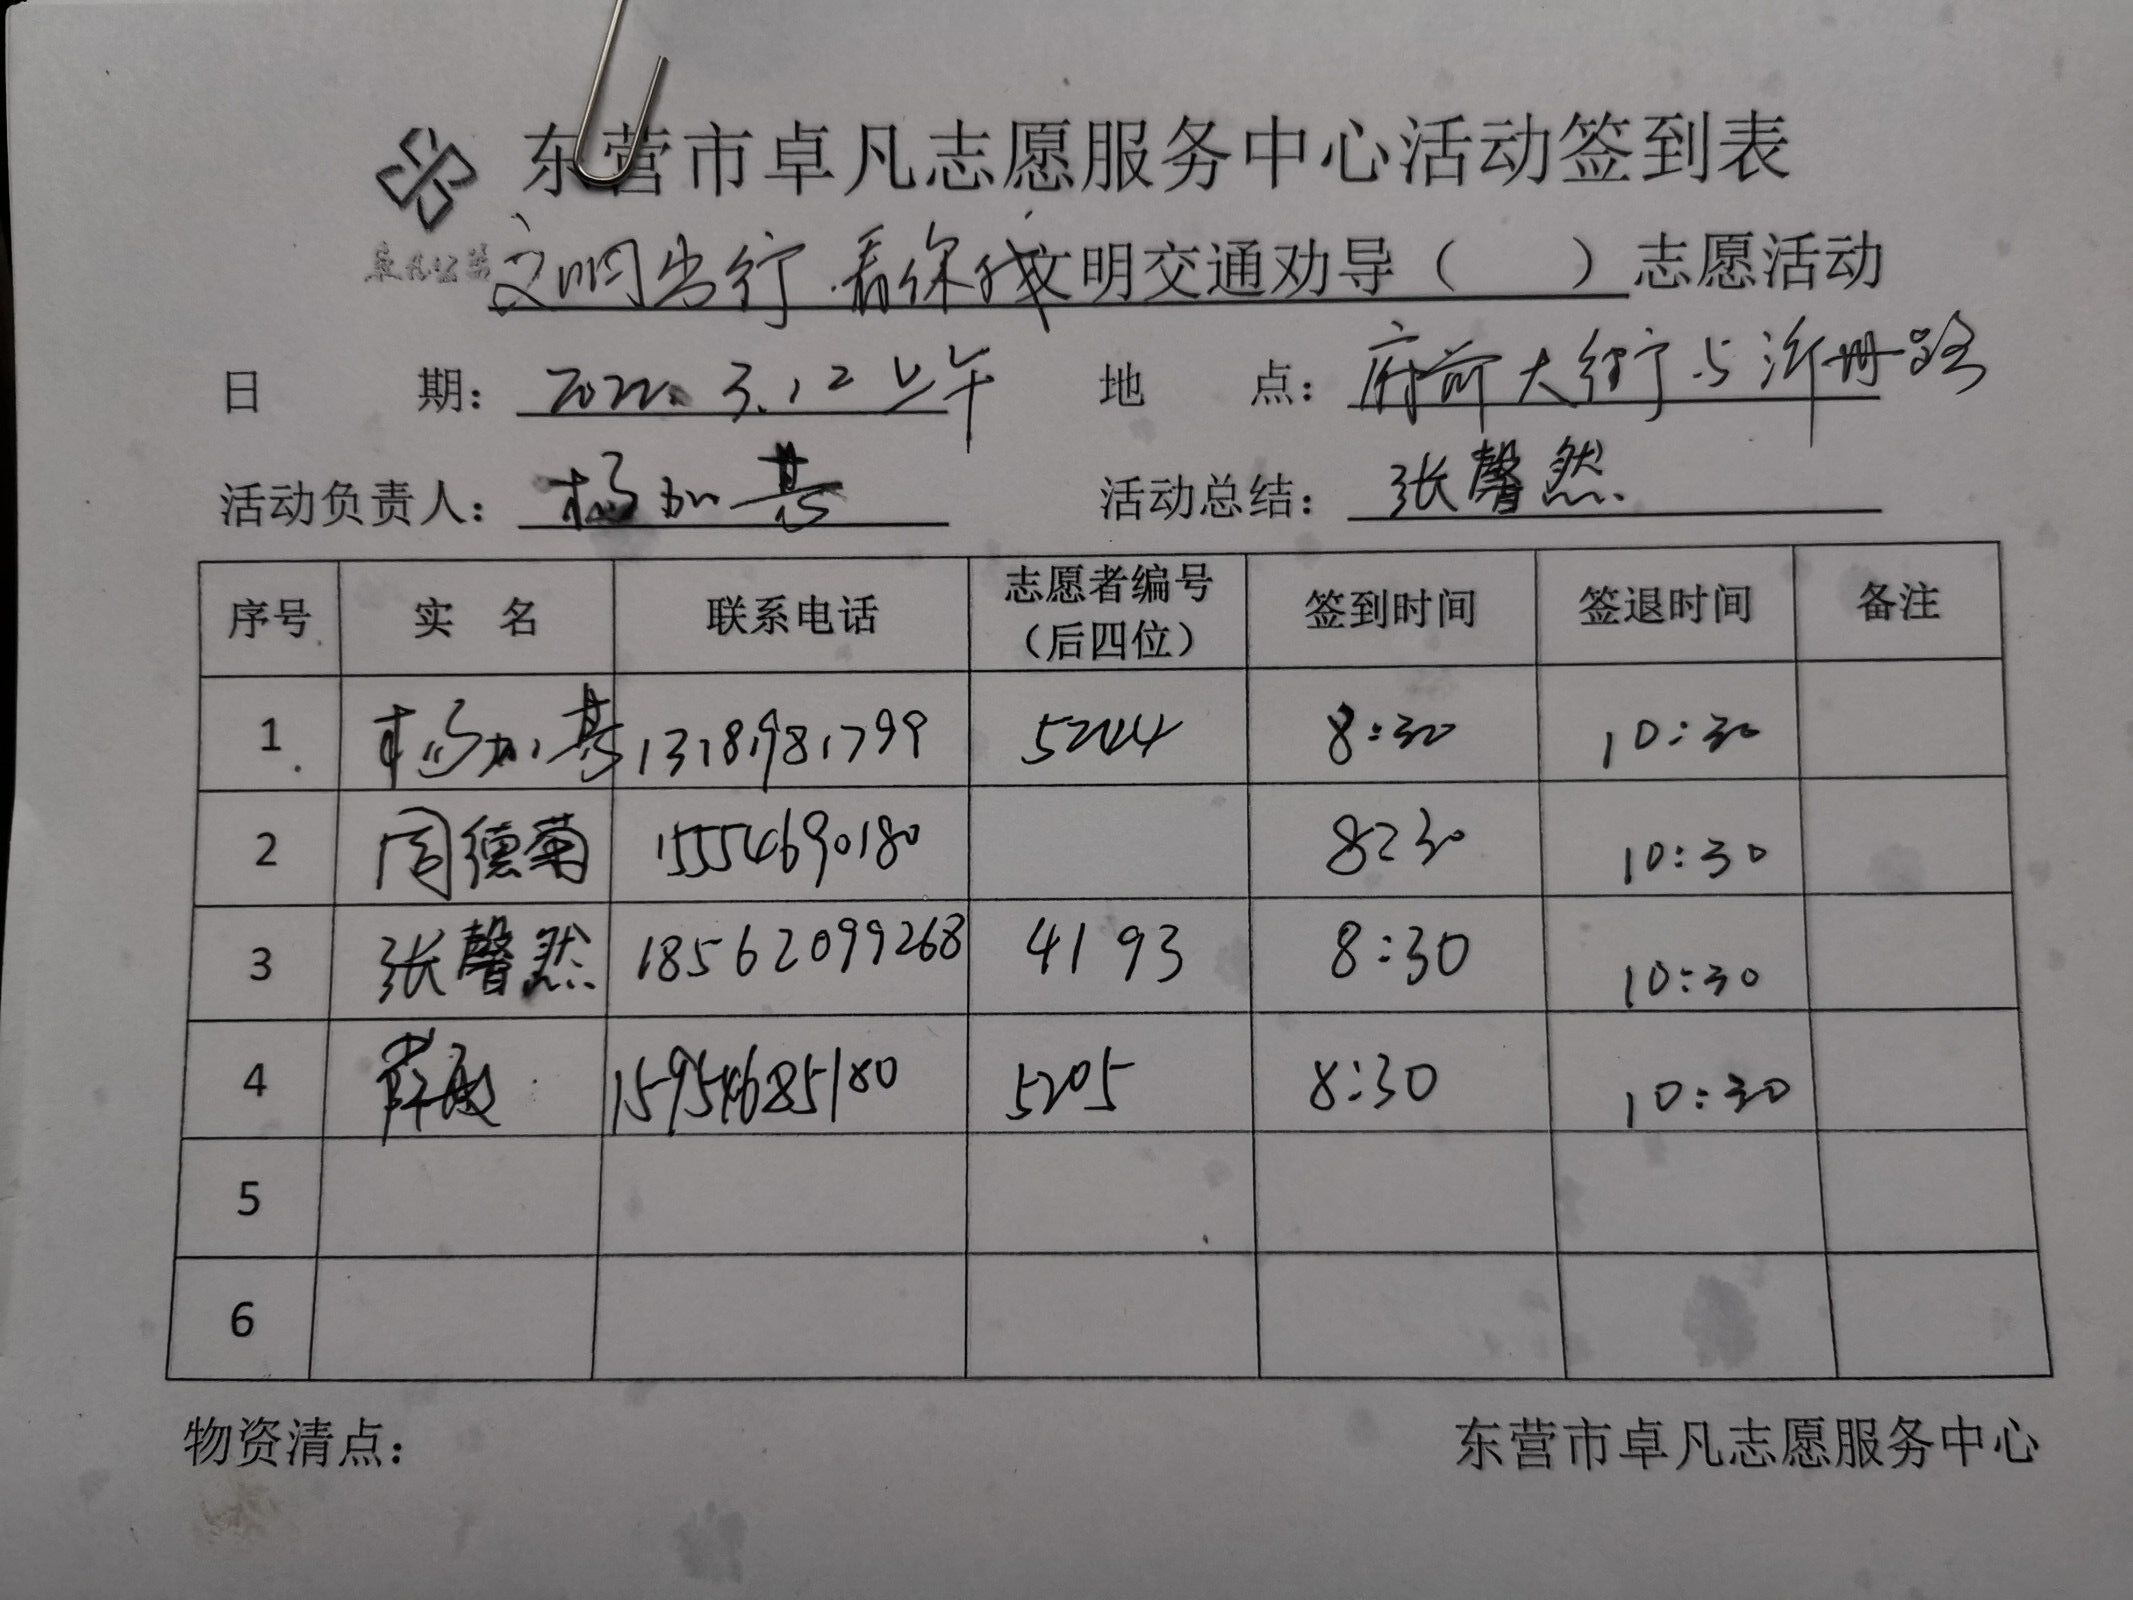 东营市卓凡志愿服务中心活动签到表
卓凡公益
文明出行 看你我文明交通劝导（ ）志愿活动
日 期： 2022.3.12上午 地 点： 府前大街与沂州路
活动负责人： 杨加基 活动总结： 张馨然
序号 实 名 联系电话 志愿者编号（后四位） 签到时间 签退时间 备注
1 杨加基 13181981799 5244 8:30 10:30
2 周德菊 15554690180 8:30 10:30
3 张馨然 18562099268 4193 8:30 10:30
4 薛敏 15954685180 5205 8:30 10:30
5
6
物资清点： 东营市卓凡志愿服务中心